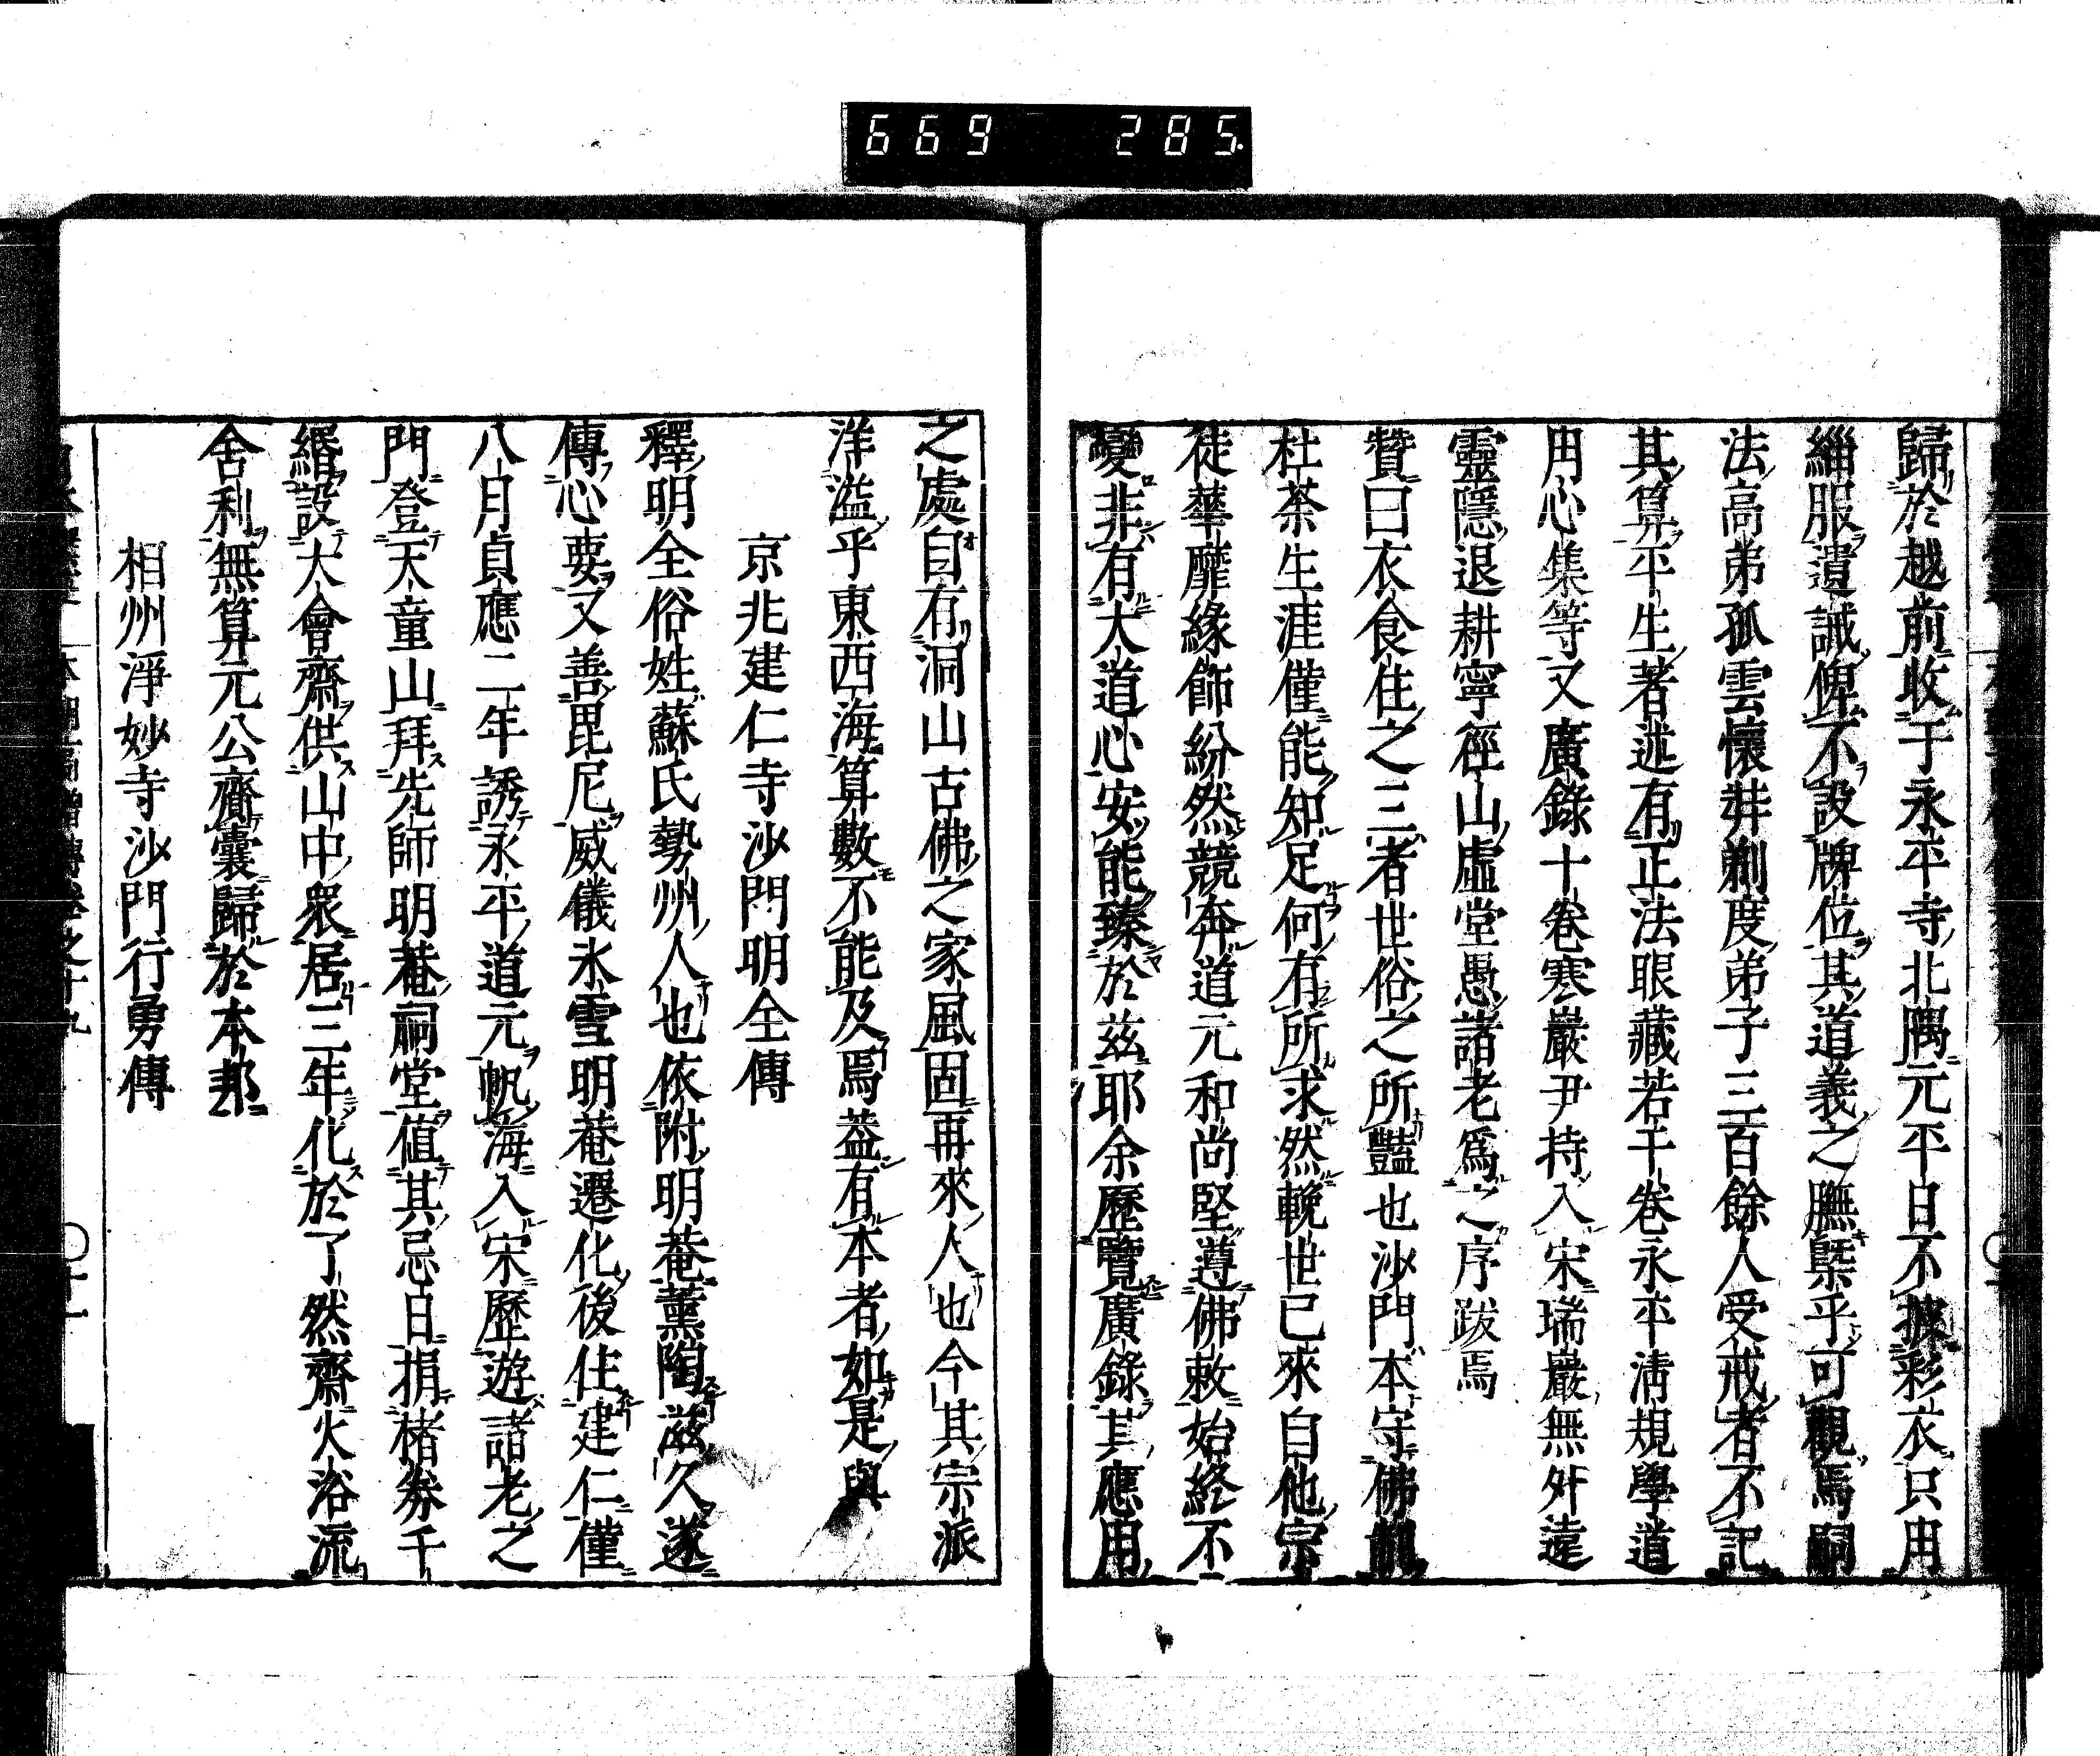 669 285
歸於越前收于永平寺北隅元平日不披彩衣只用
緇服遺誡俾不設牌位其道義之膴槩乎可觀焉嗣
法高弟孤雲懷弉剃度弟子三百餘人受戒者不記
其算平生著述有正法眼藏若干卷永平清規學道
用心集等又廣錄十卷寒巖尹持入宋瑞巖無外遠
靈隱退耕寧徑山虛堂愚諸老爲之序跋焉
贊曰衣食住之三者世俗之所豔也沙門本守佛制
杜荼生涯僅能知足何有所求然輓世已來自他宗
徒華靡緣飾紛然競奔道元和尚堅遵佛敕始終不
變非有大道心安能臻於茲耶余歷覽廣錄其應用
之處自有洞山古佛之家風固再來人也今其宗派
洋溢乎東西海算數不能及焉葢有本者如是與
京兆建仁寺沙門明全傳
釋明全俗姓蘇氏勢州人也依附明菴薰陶茲久遂
傳心要又善毘尼威儀氷雪明菴遷化後住建仁僅
八月貞應二年誘永平道元帆海入宋歷遊諸老之
門登天童山拜先師明菴祠堂值其忌日捐楮券千
緡設大會齋供山中衆居三年化於了然齋火浴流
舍利無算元公齎囊歸於本邦
相州淨妙寺沙門行勇傳